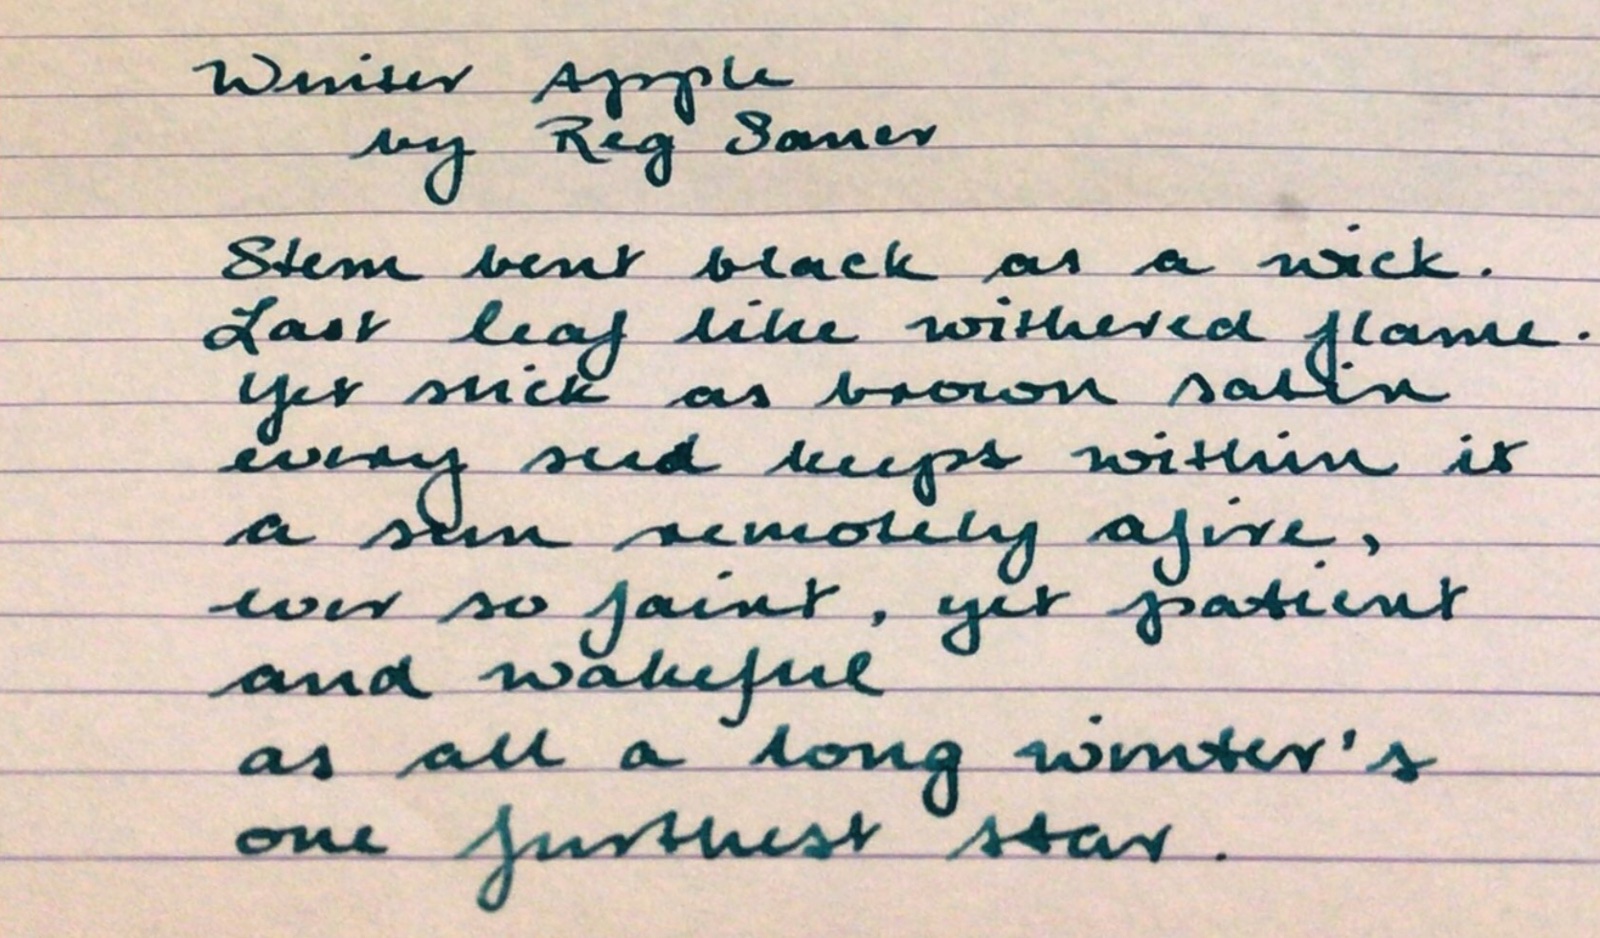 Winter Apple
by Reg Saner
Stem bent black as a wick.
Last leaf like withered flame.
Yet slick as brown satin
every seed keeps within it
a sun remotely afire,
ever so faint, yet patient
and wakeful
as all a long winter's
one furthest star.